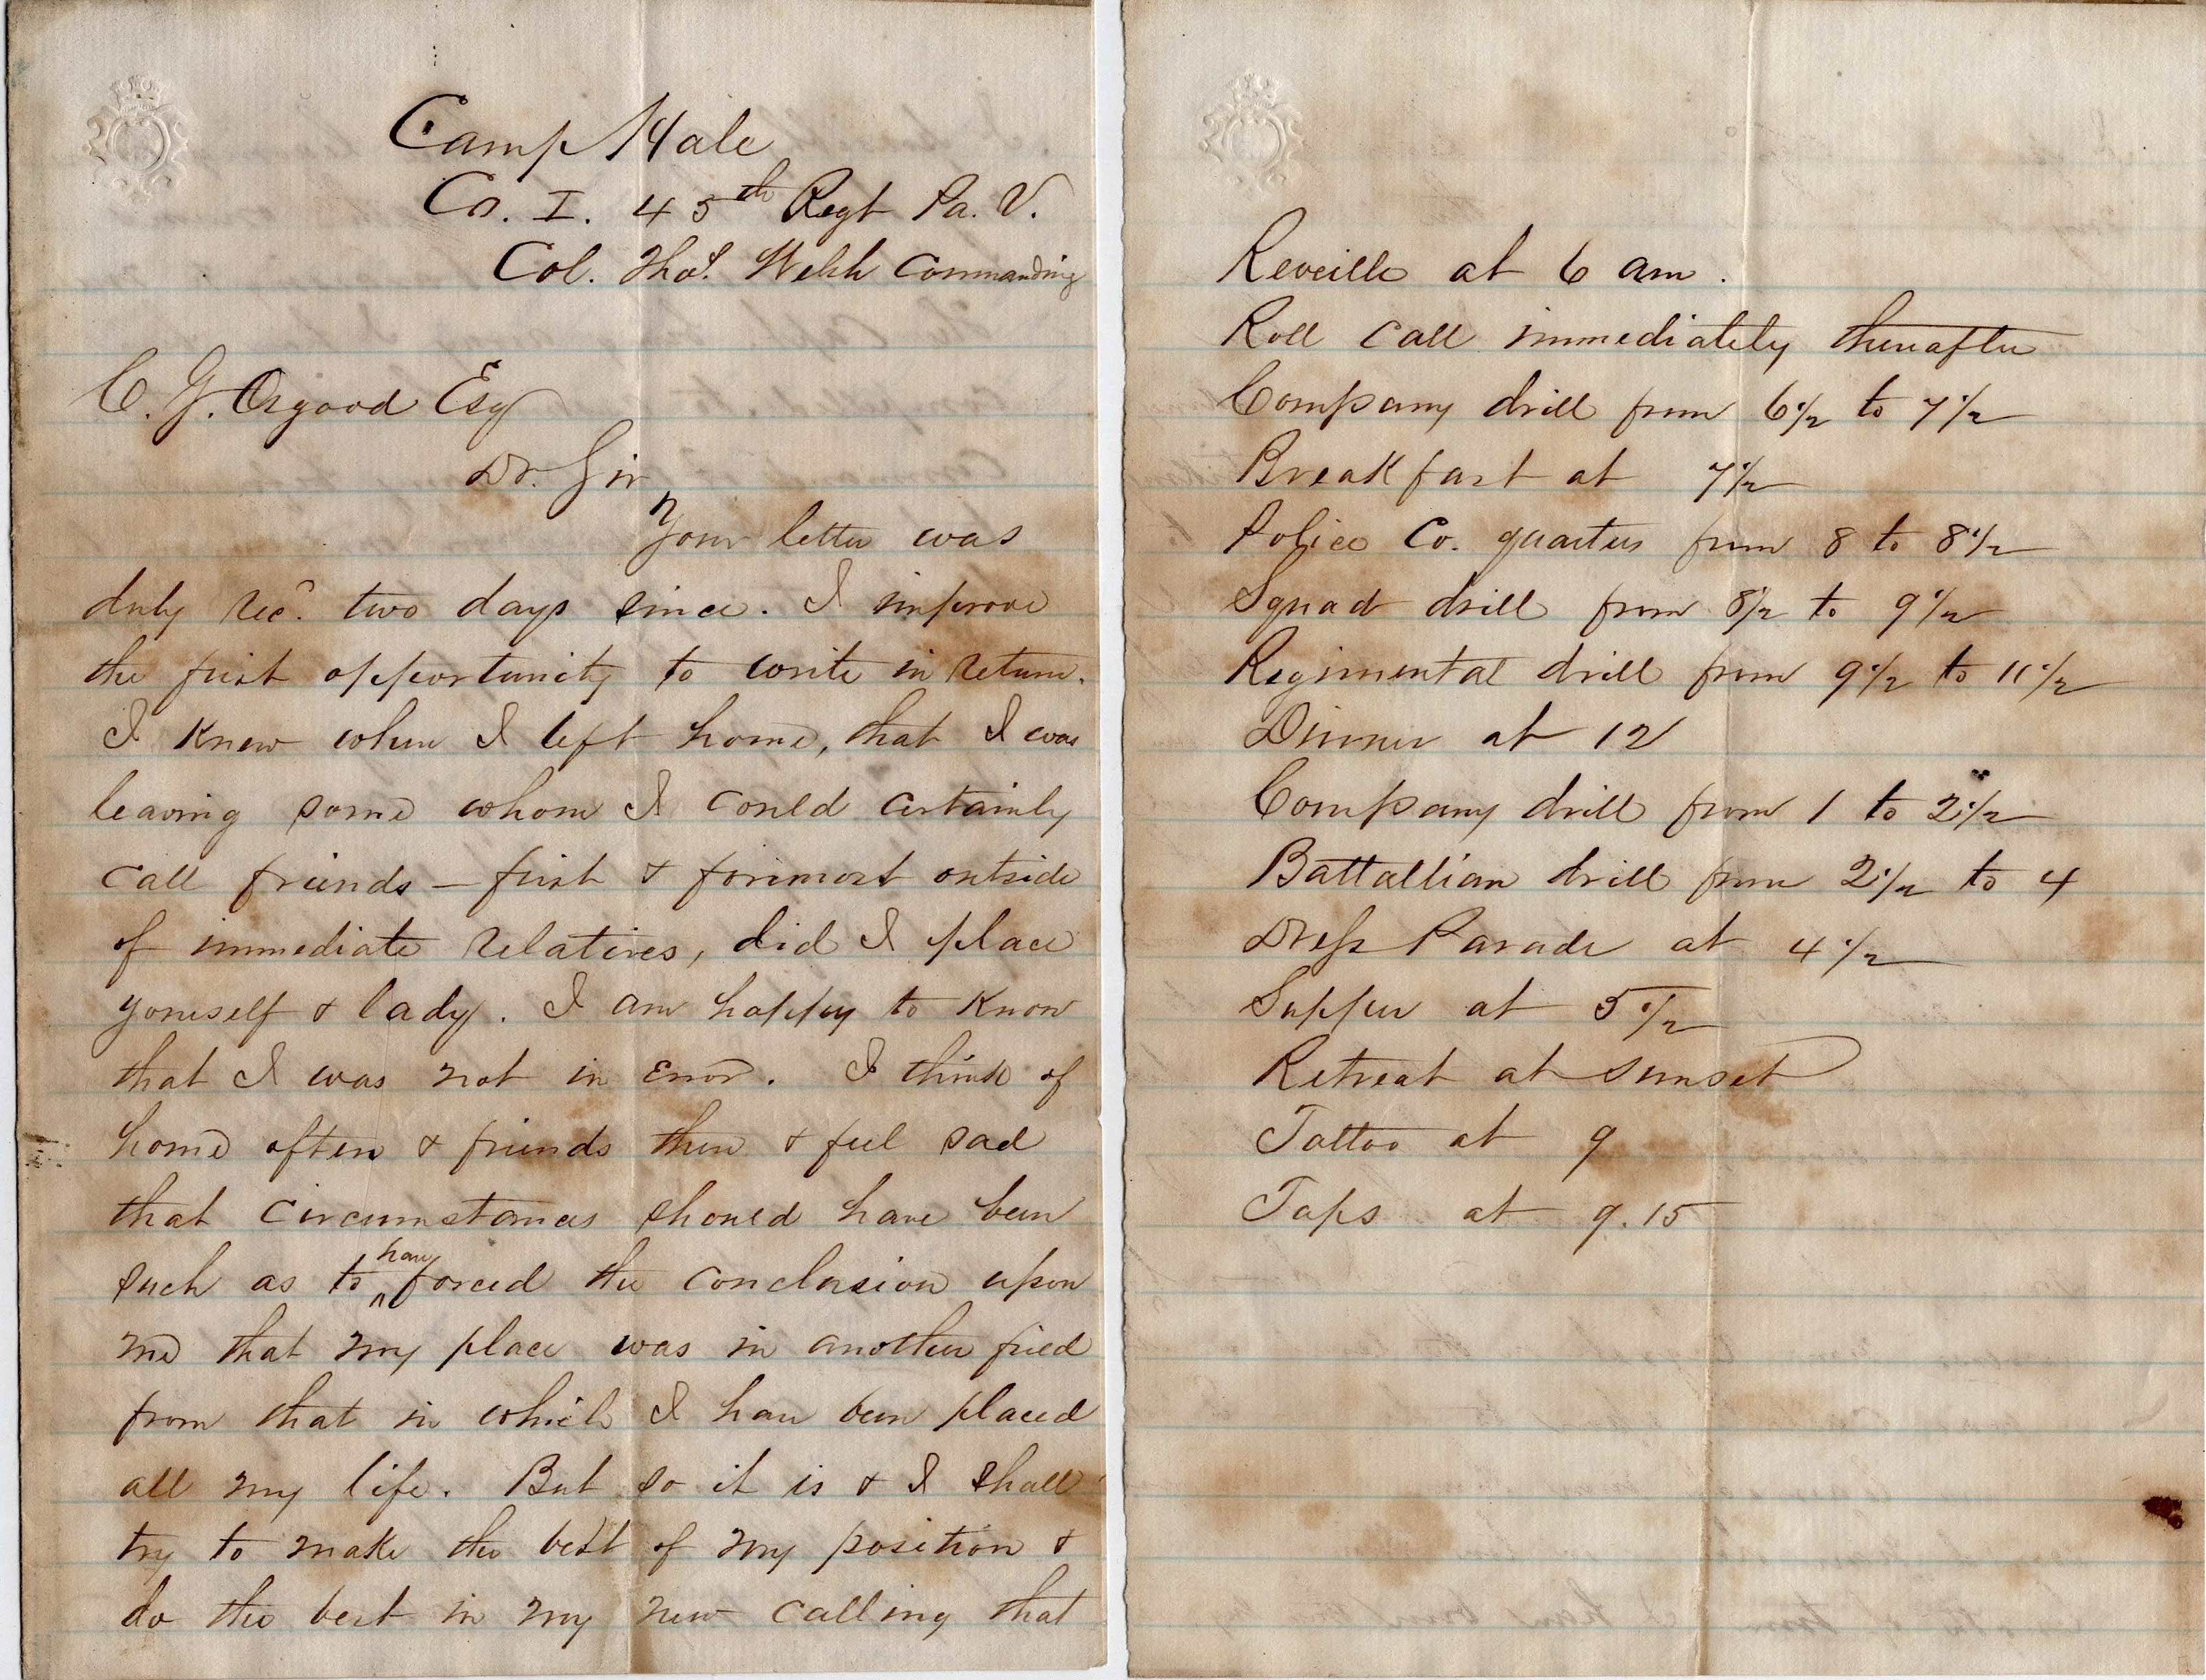 Camp Hale
Co. I. 45th Regt Pa. V.
Col. Thos. Welsh Commanding
C. G. Osgood Esq
Dr. Sir
Your letter was
duly rec'd. two days since. I improve
the first opportunity to write in return.
I knew when I left home, that I was
leaving some whom I could certainly
call friends — first & foremost outside
of immediate relatives, did I place
yourself & lady. I am happy to know
that I was not in error. I think of
home often & friends there & feel sad
that circumstances should have been
such as to have forced the conclusion upon
me that my place was in another field
from that in which I have been placed
all my life. But so it is & I shall
try to make the best of my position &
do the best in my new calling that
Reveille at 6 am.
Roll call immediately thereafter
Company drill from 6 1/2 to 7 1/2
Breakfast at 7 1/2
Police Co. quarters from 8 to 8 1/2
Squad drill from 8 1/2 to 9 1/2
Regimental drill from 9 1/2 to 11 1/2
Dinner at 12
Company drill from 1 to 2 1/2
Battallian drill from 2 1/2 to 4
Dress Parade at 4 1/2
Supper at 5 1/2
Retreat at sunset
Tattoo at 9
Taps at 9.15